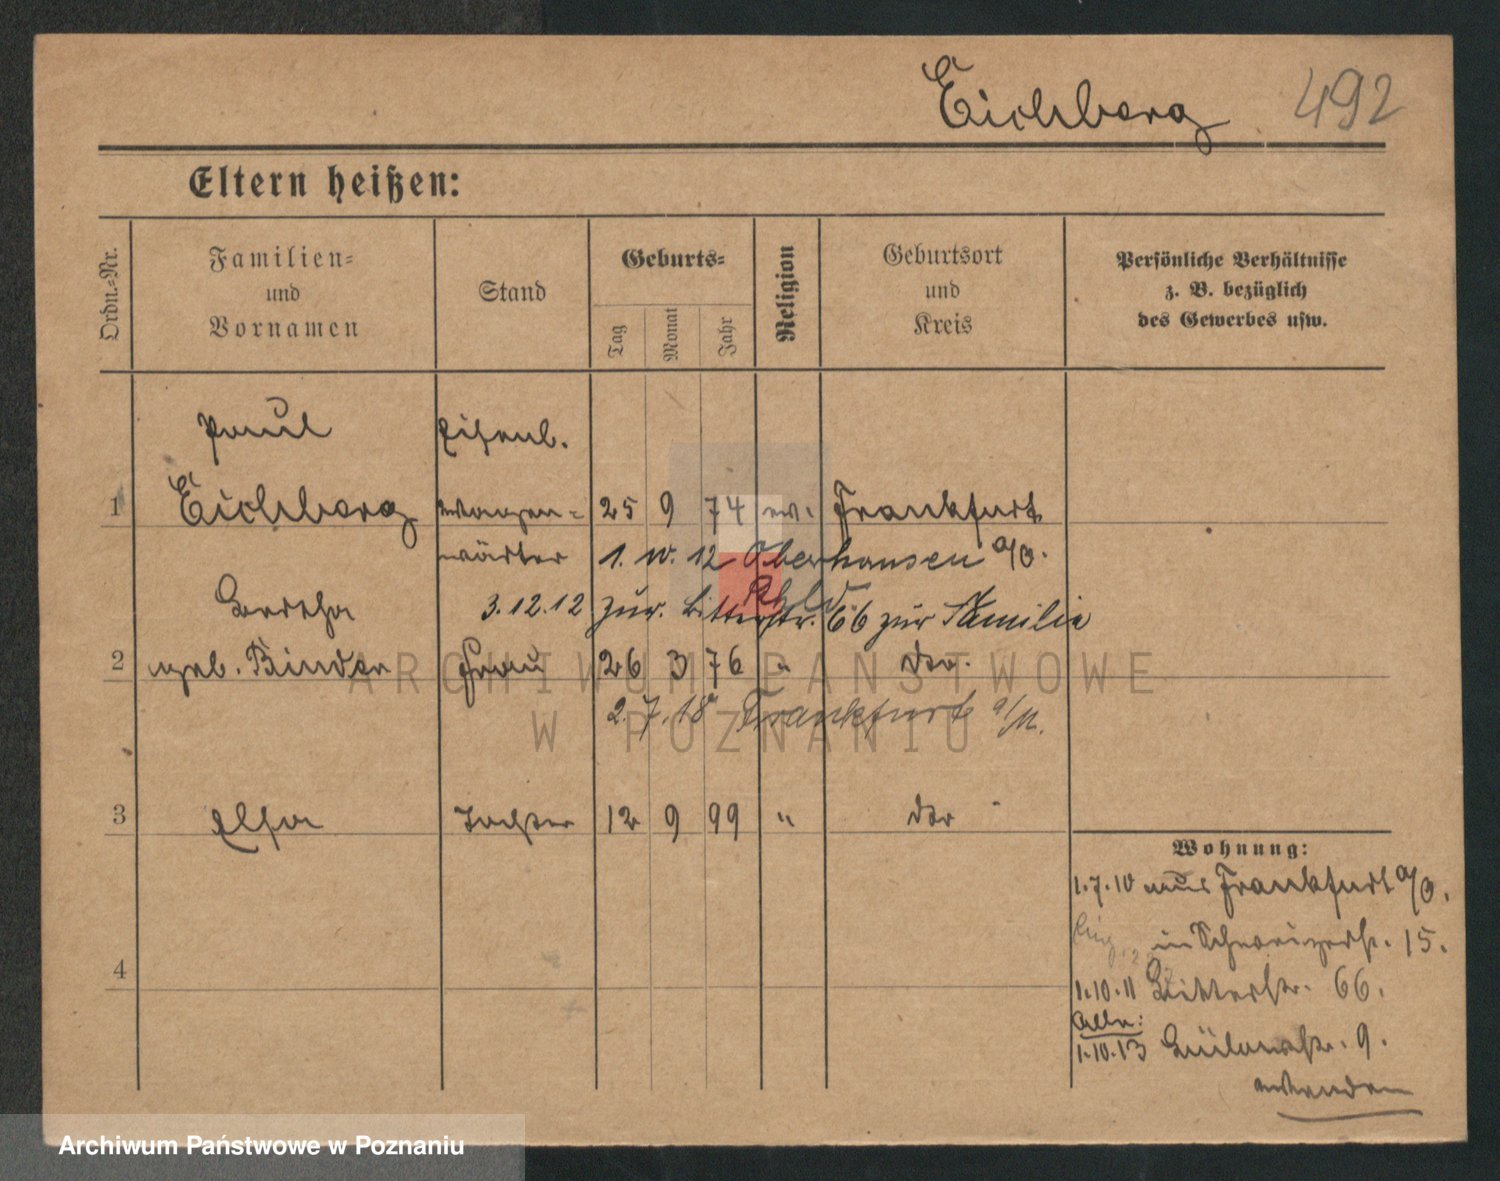 Eichberg 492
Eltern heißen:
Ordn.-Nr.
Familien-
und
Vornamen
Stand
Geburts-
Tag
Monat
Jahr
Religion
Geburtsort
und
Kreis
Persönliche Verhältnisse
z. B. bezüglich
des Gewerbes usw.
Paul Eisenb.
1 Eichberg wagen- 25 9 74 ev. Frankfurt
wärter 1. 10. 12 Oberhausen a/O.
Rhld
Bertha 3.12.12 zur. Bitterstr. 66 zur Familie
2 geb. Binder Frau 26 3 76 " do.
2.7.18 Frankfurt a/M.
3 Elsa Tochter 12 9 99 " do
4
Wohnung:
1.7.10 aus Frankfurt a/O.
in 15.
1.10.11 Bitterstr. 66.
1.10.13 Bülowstr. 9.
wenden
ARCHIWUM PAŃSTWOWE
W POZNANIU
Archiwum Państwowe w Poznaniu